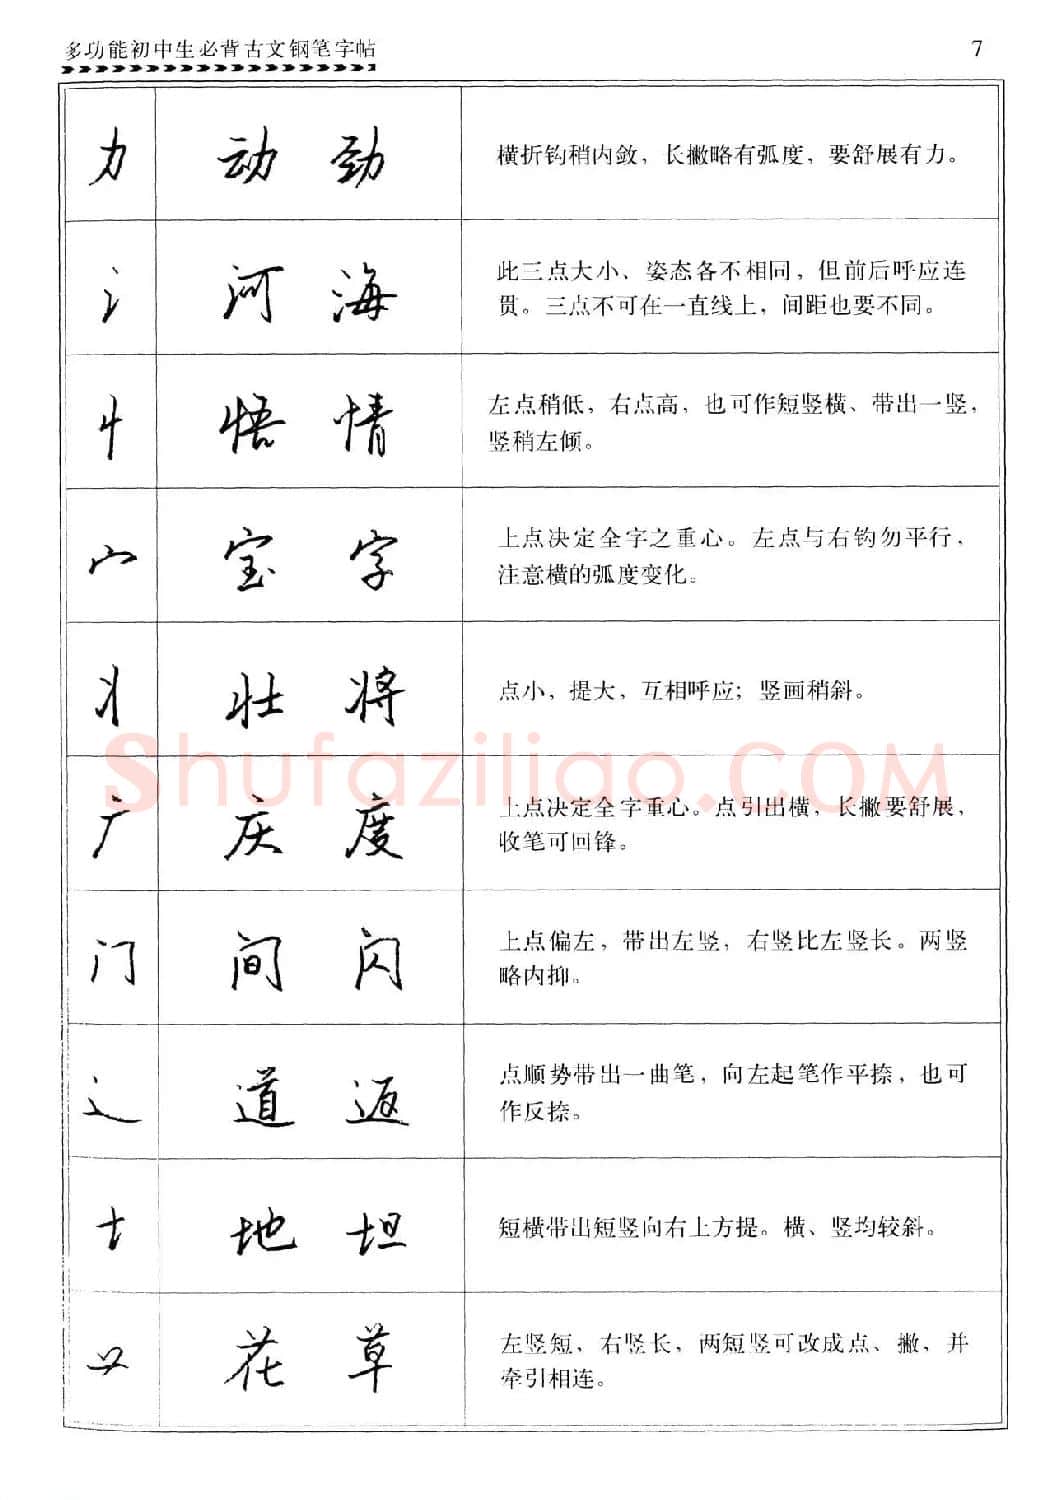 多功能初中生必背古文钢笔字帖 7
力 动 劲 横折钩稍内敛，长撇略有弧度，要舒展有力。
氵 河 海 此三点大小、姿态各不相同，但前后呼应连
贯。三点不可在一直线上，间距也要不同。
忄 悟 情 左点稍低，右点高，也可作短竖横、带出一竖，
竖稍左倾。
宀 宝 字 上点决定全字之重心。左点与右钩勿平行，
注意横的弧度变化。
丬 壮 将 点小，提大，互相呼应；竖画稍斜。
广 庆 度 上点决定全字重心。点引出横，长撇要舒展，
收笔可回锋。
门 间 闪 上点偏左，带出左竖，右竖比左竖长。两竖
略内抑。
辶 道 返 点顺势带出一曲笔，向左起笔作平捺，也可
作反捺。
土 地 坦 短横带出短竖向右上方提。横、竖均较斜。
艹 花 草 左竖短，右竖长，两短竖可改成点、撇，并
牵引相连。
Shufaziliao.COM